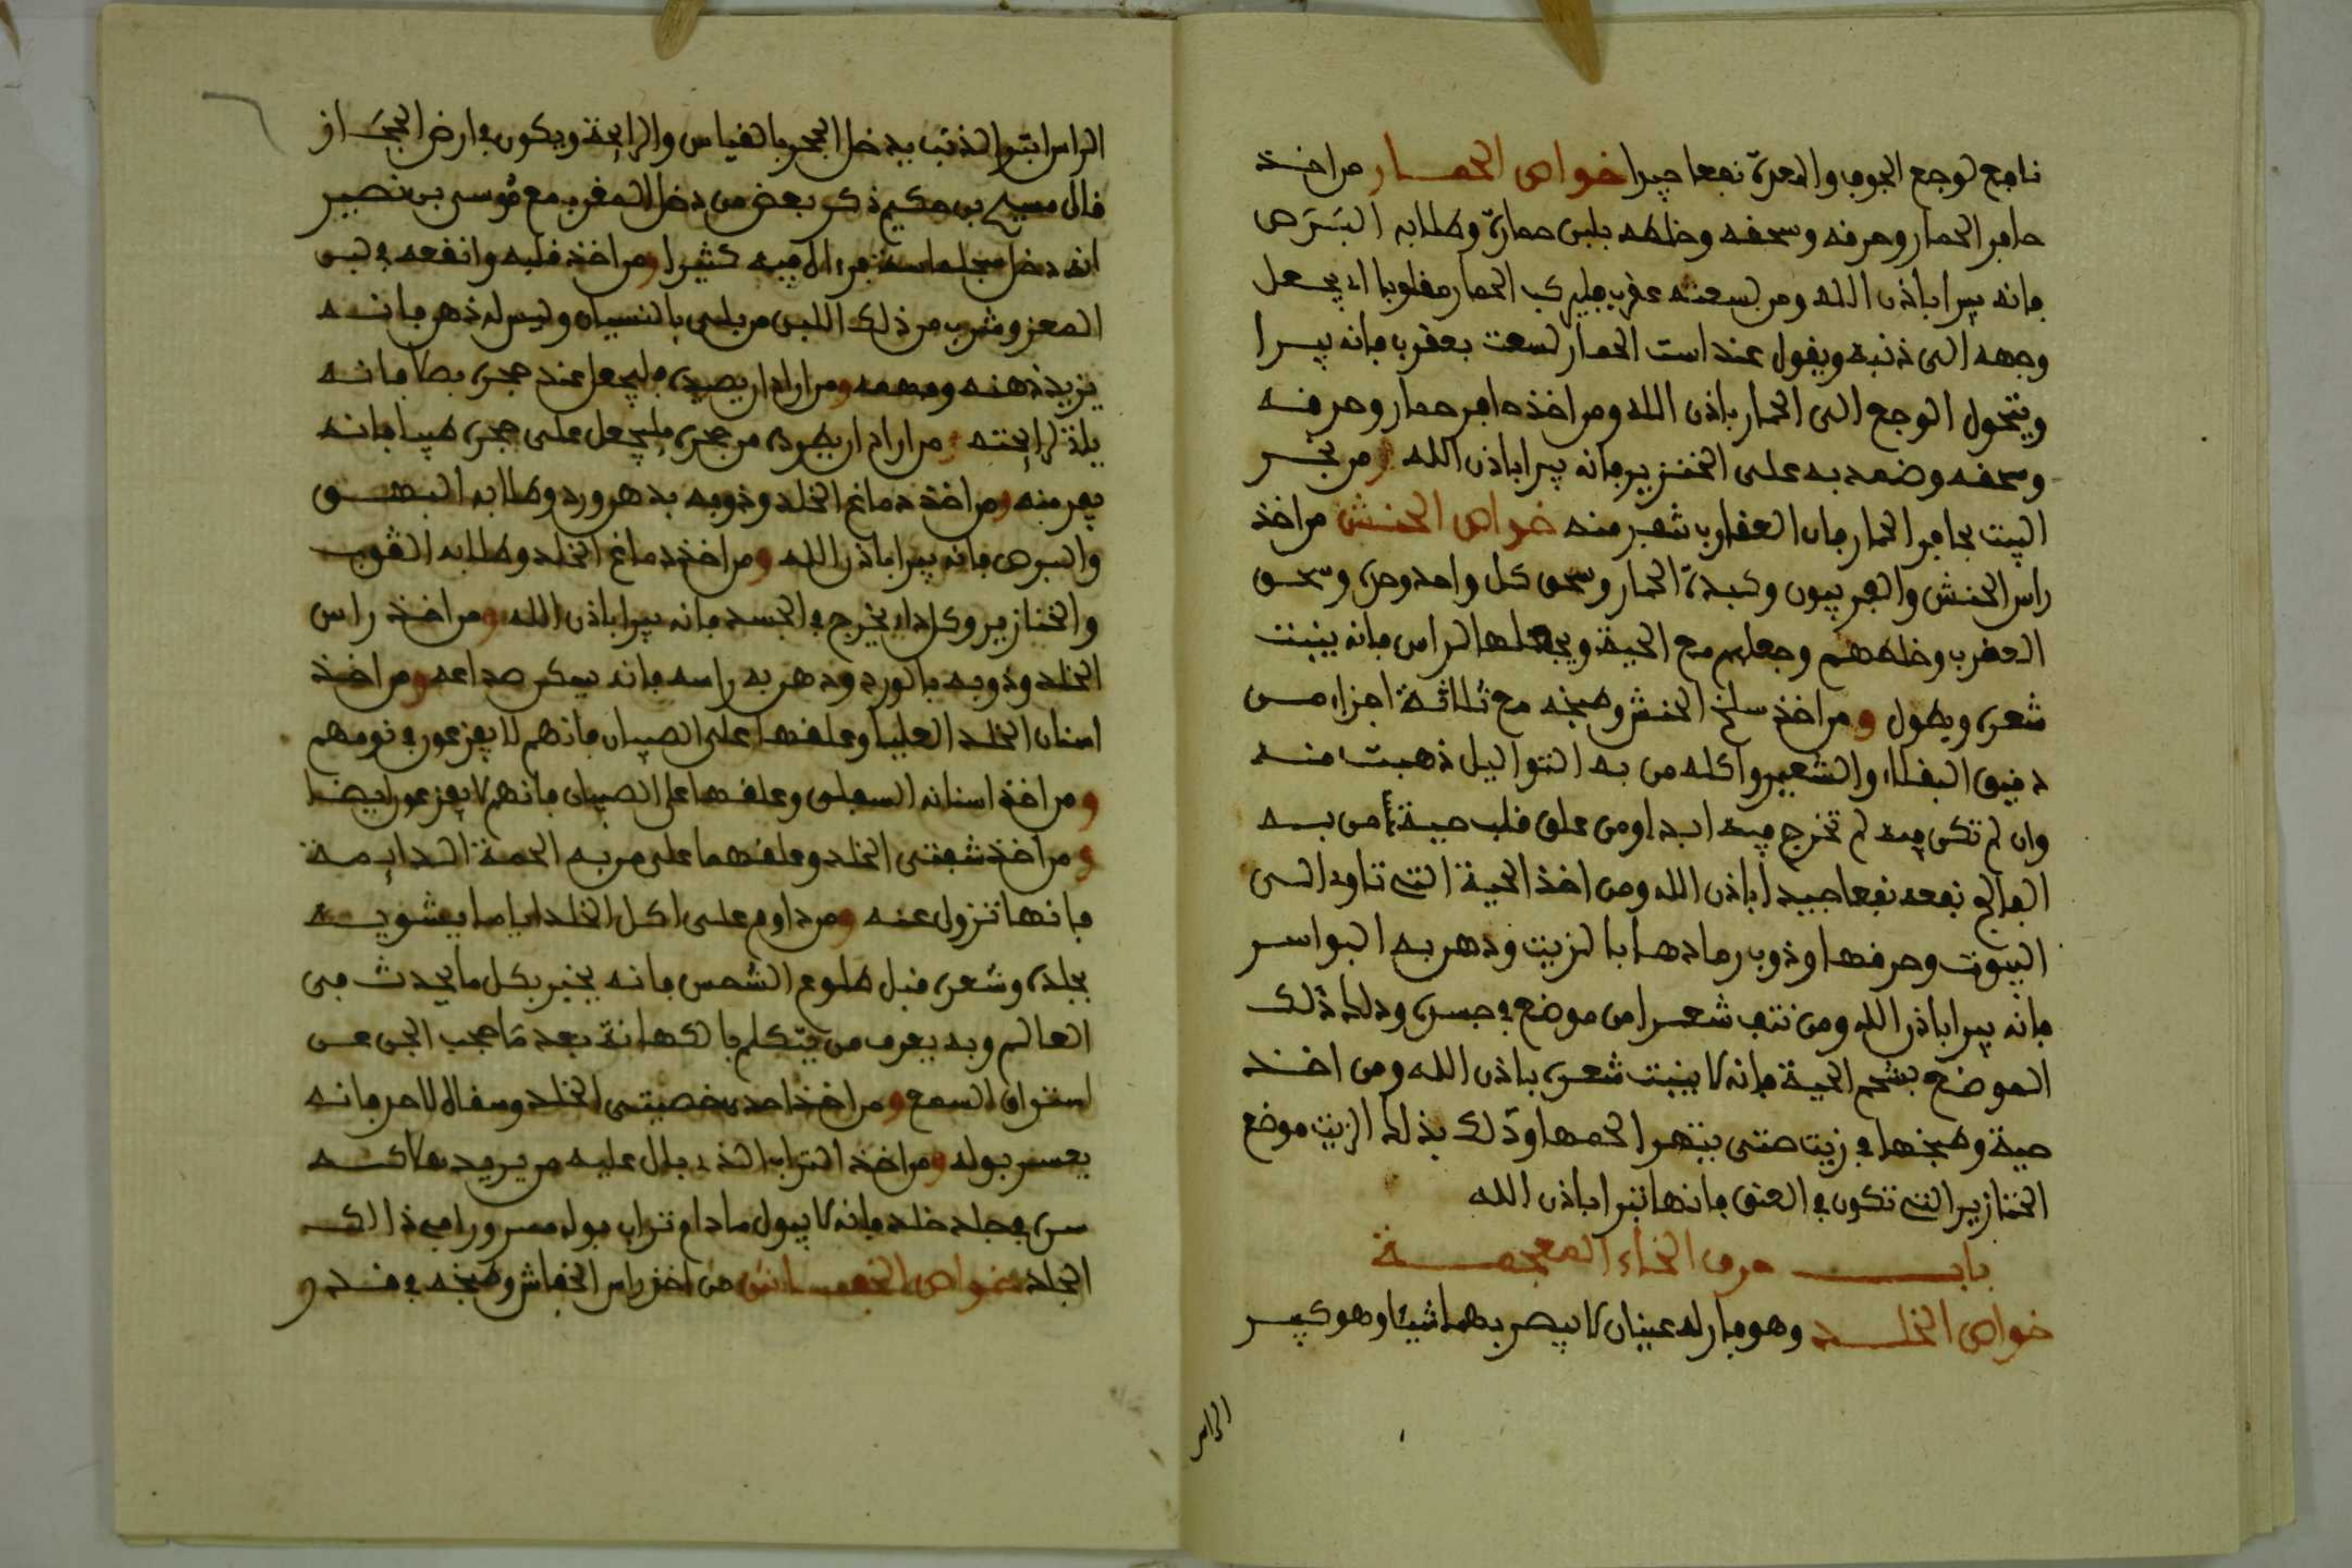 نافع لوجع الجوف والمعدة نفعا جيرا خواص الحمار من اخذ
حافر الحمار وحرفه وسحقه وخلطه بلبن حمارة وطلا به البَرَص
فانه يبرا باذن الله ومن لسعته عقرب فليركب الحمار مقلوبا اي يجعل
وجهه الى ذنبه ويقول عند است الحمار لسعت بعقرب فانه يبرا
ويتحول الوجع الى الحمار باذن الله ومن اخذ حافر حمار وحرقه
وسحقه وضمد به على الخنزير فانه يبرا باذن الله ومن بخر
البيت بحافر الحمار فان العقارب تنفر منه خواص الحنش من اخذ
راس الحنش والفربيون وكبدة الحمار وسحق كل واحد وحده وسحق
العقرب وخلطهم وجعلهم مع الحية ويجعلها الراس فانه ينبت
شعره ويطول ومن اخذ سلخ الحنش وطبخه مع ثلاثة اجزاء من
دقيق البقلاء والشعير واكله من به التواليل ذهبت منه
وان لم تكن فيه لم تخرج فيه ابدا ومن علق قلب حية على من به
الفالج نفعه نفعا جيدا باذن الله ومن اخذ الحية التي تاوي الى
البيوت وحرقها وذوب رمادها بالزيت ودهن به البواسر
فانه يبرا باذن الله ومن نتف شعرا من موضع في جسده ودلك ذلك
الموضع بشحم الحية فانه لا ينبت شعره باذن الله ومن اخذ
حية وطبخها في زيت حتى يتهرا لحمها ودلك بذلك الزيت موضع
الخنازير التي تكون في العنق فانها تبرا باذن الله
باب حرف الخاء المعجمة
خواص الخلد وهو فار له عينان لا يبصر بهما شيئا وهو كبير
الراس
الراس ابتر الذنب يدخل الجحر بالقياس والرايحة ويكون في ارض الحجَاز
قال مسيح بن حكيم ذكر بعض من دخل المغرب مع مُوسى بن نصير
انه دخل سجلماسة فراى فيه كثيرا ومن اخذ قلبه وانقعه في لبن
المعز وشرب من ذلك اللبن من بلي بالنسيان وليس له ذهن فانه
يزيد ذهنه وفهمه ومن اراد ان يصيده فليجعل عند جحره بصلا فانه
ياتي لرايحته ومن اراد ان يطرده من جحره فليجعل على جحره طيبا فانه
يفر منه ومن اخذ دماغ الخلد وذوبه بدهن ورد وطلا به البهق
والبرص فانه يبرا باذن الله ومن اخذ دماغ الخلد وطلا به القوب
والخنازير وكل داء يخرج في الجسد فانه يبرا باذن الله ومن اخذ راس
الخلد وذوبه بالورد ودهن به راسه فانه يسكن صداعه ومن اخذ
اسنان الخلد العليا وعلقها على الصبيان فانهم لا يفزعون في نومهم
ومن اخذ اسنانه السفلى وعلقها على الصبيان فانهم لا يفزعون ايضا
ومن اخذ شفتي الخلد وعلقهما على من به الحمة الدايمة
فانها تزول عنه ومن داوم على اكل الخلد اياما يشويه
بجلده وشعره قبل طلوع الشمس فانه يخبر بكل ما يحدث في
العالم وبه يعرف من يتكلم بالكهانة بعد مَا حجب الجن عن
استراق السمع ومن اخذ احدى خصيتي الخلد وسقاه لاحد فانه
يعسر بوله ومن اخذ التراب الذي بال عليه من يريد هلاكه
سره في جلد خلد فانه لا يبول ما دام تراب بوله مصرورا في ذالك
الجلد خواص الخفاش من اخذ راس الخفاش وطبخه في قدر